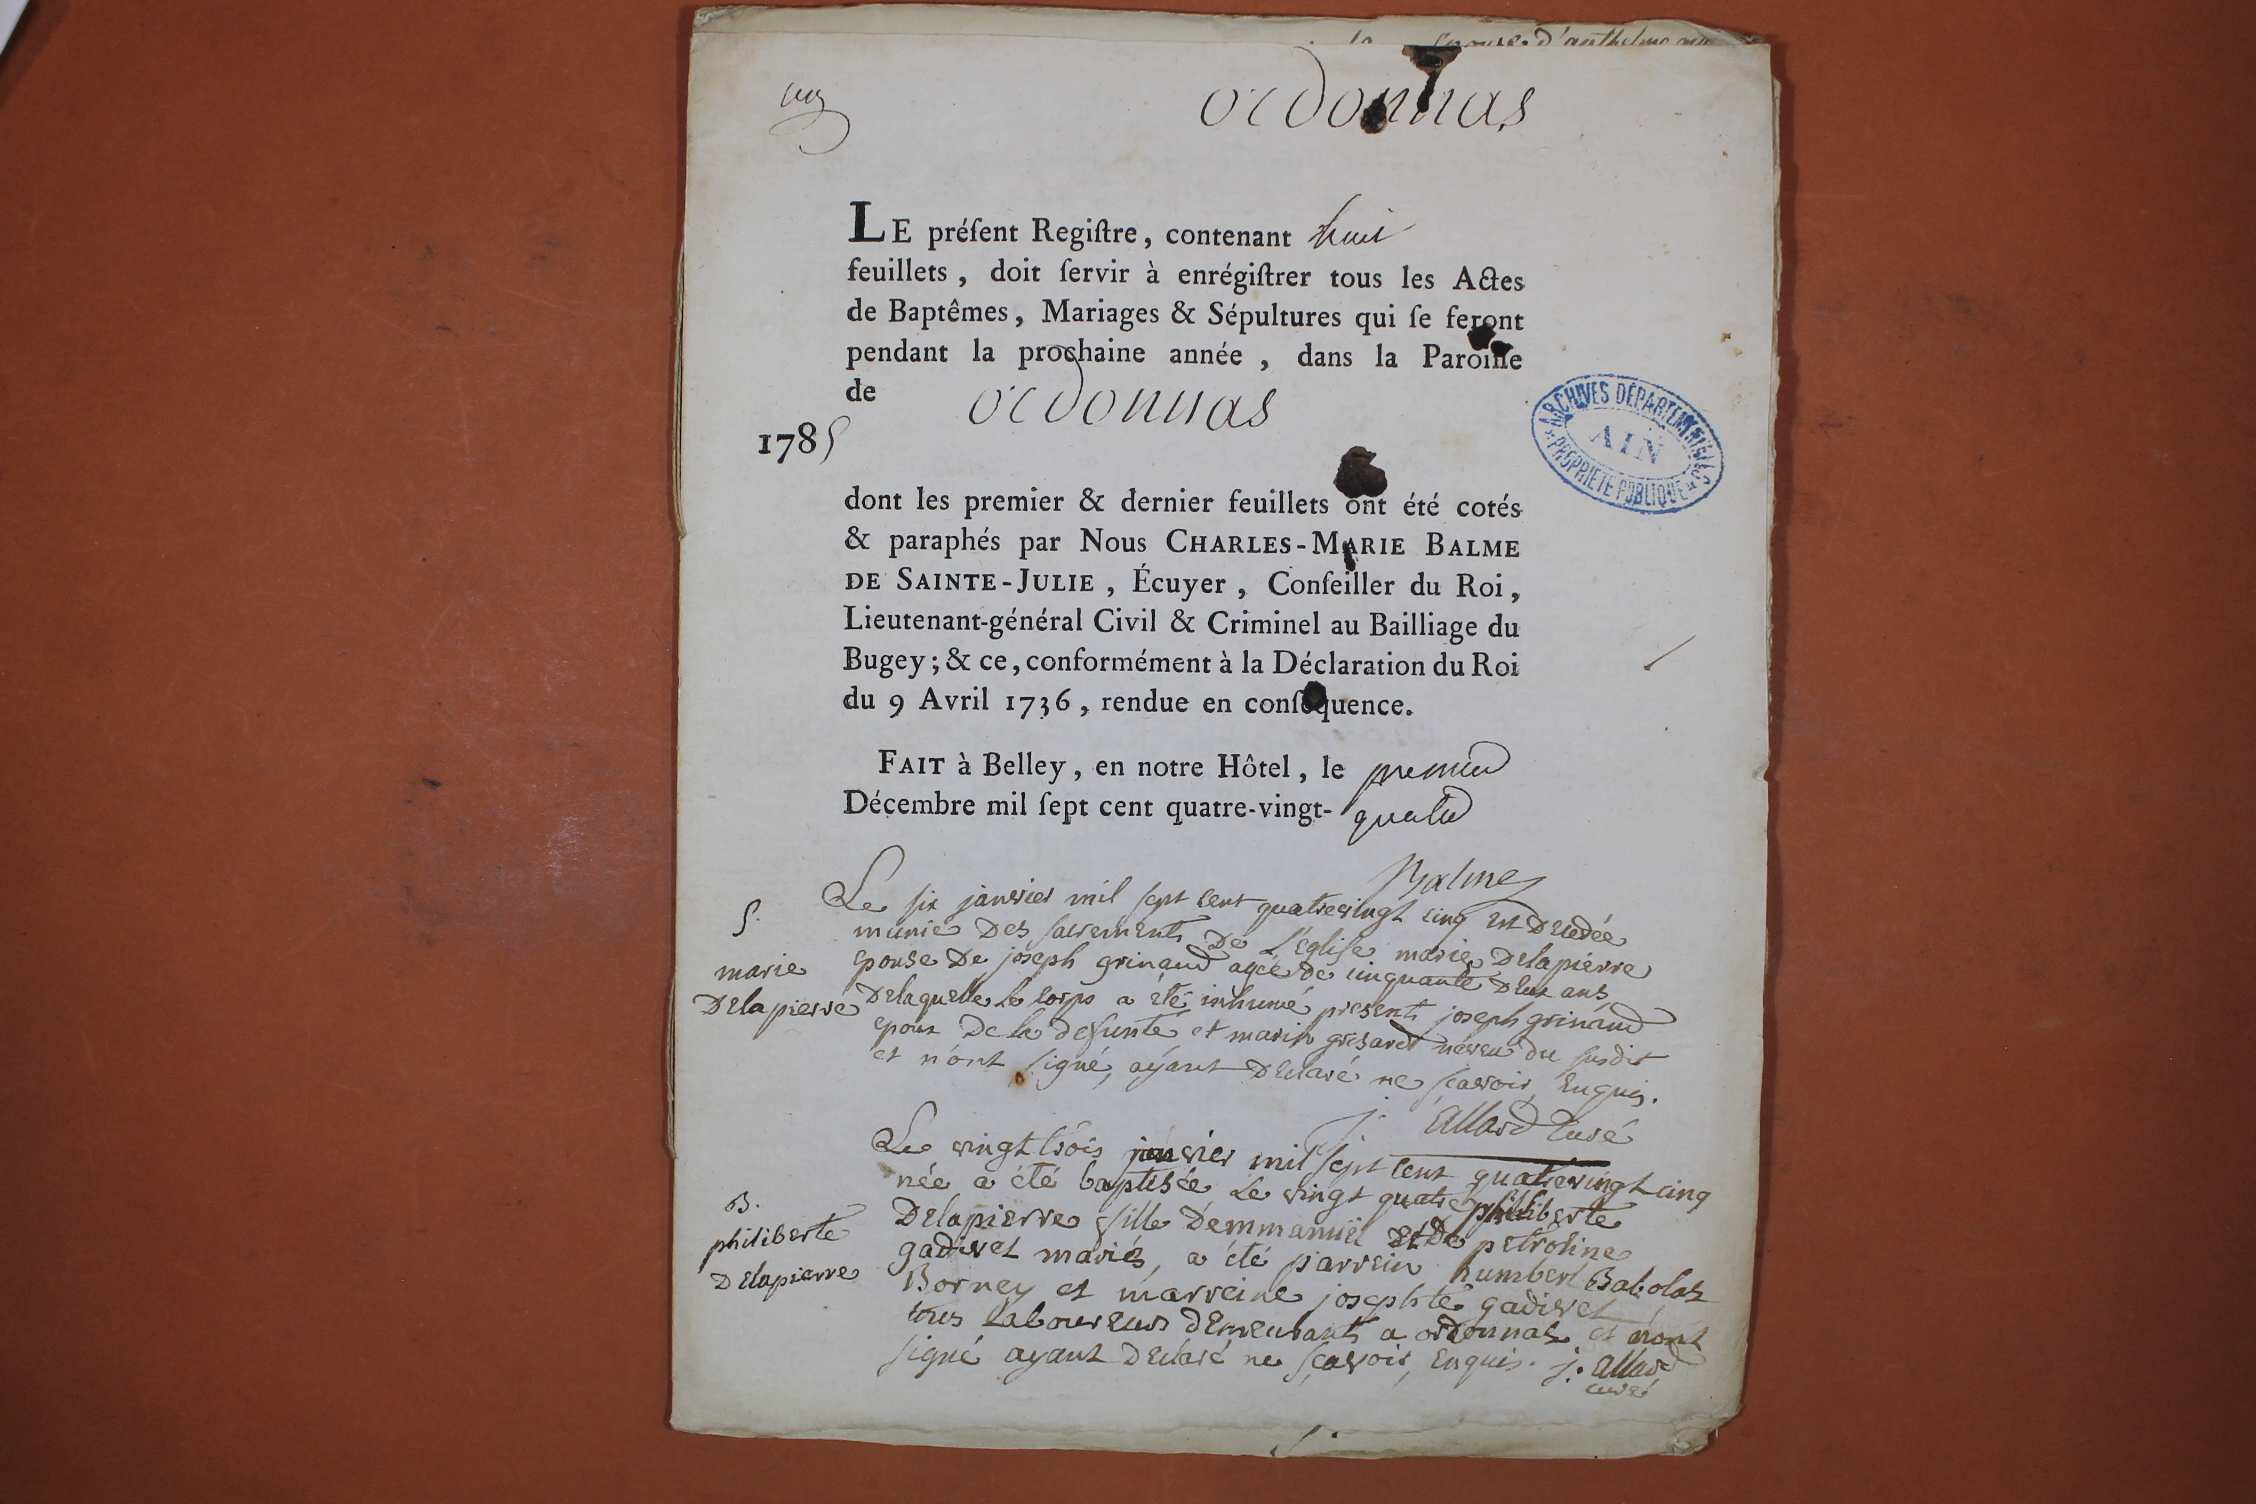 epouse d'anthelme
un
ordonnas
LE préſent Regiſtre, contenant huit
feuillets, doit ſervir à enrégiſtrer tous les Actes
de Baptêmes, Mariages & Sépultures qui ſe feront
pendant la prochaine année, dans la Paroiſſe
de ordonnas
1785
ARCHIVES DÉPARTEMENTALES
AIN
PROPRIÉTÉ PUBLIQUE
dont les premier & dernier feuillets ont été cotés
& paraphés par Nous CHARLES-MARIE BALME
DE SAINTE-JULIE, Écuyer, Conſeiller du Roi,
Lieutenant-général Civil & Criminel au Bailliage du
Bugey; & ce, conformément à la Déclaration du Roi
du 9 Avril 1736, rendue en conſéquence.
FAIT à Belley, en notre Hôtel, le premier
Décembre mil ſept cent quatre-vingt-quatre
Balme
S.
marie
Delapierre
Le six janvier mil sept cent quatrevingt cinq est decedée
munie des sacrements de L'eglise marie Delapierre
epouse de joseph grinand agée de cinquante deux ans,
delaquelle le corps a été inhumé presents joseph grinand
epoux de la defunte et marin gresard néveu du susdit
et n'ont signé, ayant declaré ne scavoir, enquis.
j. allard curé
B.
philiberte
Delapierre
Le vingt trois janvier mil sept cent quatrevingt cinq
née a été baptisée le vingt quatre philiberte
Delapierre fille d'emmanuel et de petroline
gadivet mariés, a été parrein humbert Babolat
Borney et marreine josephte gadivet
tous laboureurs demeurants a ordonnas et n'ont
signé ayant declaré ne scavoir, enquis. j. allard
curé